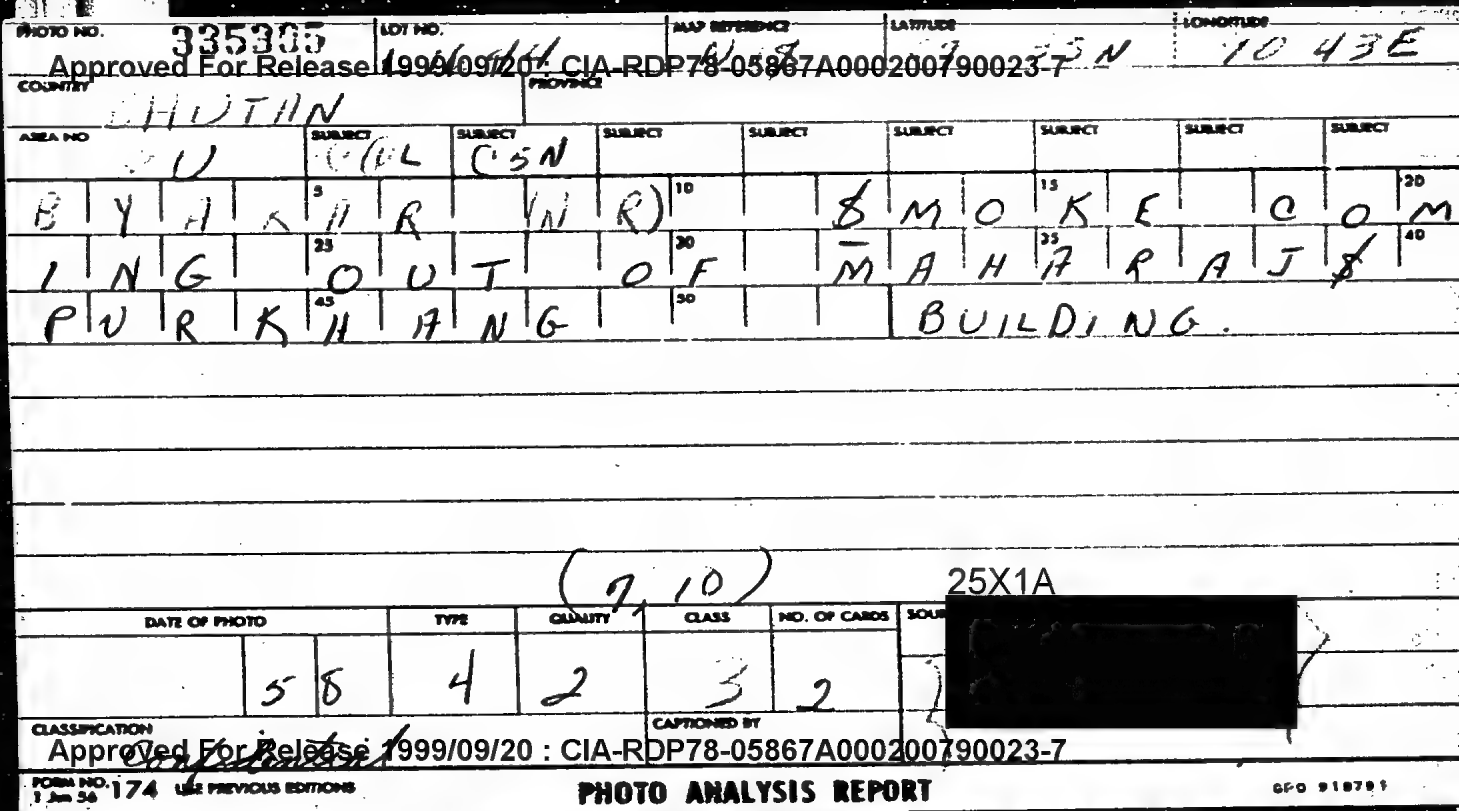 PHOTO NO. 335305 LOT NO. MAP REFERENCE LATITUDE LONGITUDE
35N 10 43E
Approved For Release 1999/09/20 : CIA-RDP78-05867A000200790023-7
COUNTRY BHUTAN PROVINCE
AREA NO SUBJECT SUBJECT SUBJECT SUBJECT SUBJECT SUBJECT SUBJECT SUBJECT
U CSN
BYAKAR (NR) 5 10 $MOKE COM 15 20
ING OUT OF MAHARAJ$ 25 30 35 40
PURKHANG 45 50 BUILDING.
(7,10)
25X1A
DATE OF PHOTO TYPE QUALITY CLASS NO. OF CARDS
58 4 2 3 2
CLASSIFICATION CAPTIONED BY
Confidential
Approved For Release 1999/09/20 : CIA-RDP78-05867A000200790023-7
FORM NO. 174 USE PREVIOUS EDITIONS PHOTO ANALYSIS REPORT
1 Jan 56